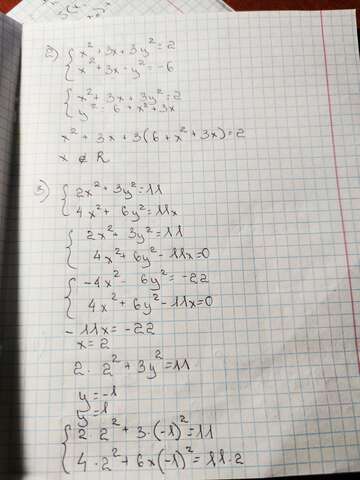 2) { x² + 3x + 3y² = 2
x² + 3x - y² = -6
{ x² + 3x + 3y² = 2
y² = 6 + x² + 3x
x² + 3x + 3(6 + x² + 3x) = 2
x ∉ R
3) { 2x² + 3y² = 11
4x² + 6y² = 11x
{ 2x² + 3y² = 11
4x² + 6y² - 11x = 0
{ -4x² - 6y² = -22
4x² + 6y² - 11x = 0
-11x = -22
x = 2
2 · 2² + 3y² = 11
y = -1
y = 1
{ 2 · 2² + 3 · (-1)² = 11
4 · 2² + 6x(-1)² = 11 · 2